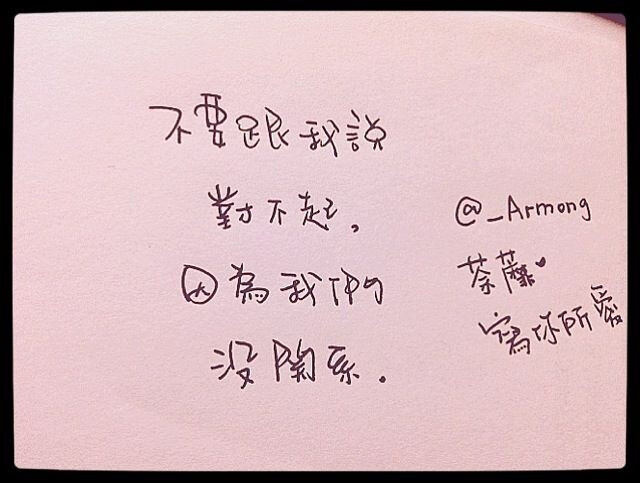 不要跟我說
對不起,
因為我們
沒關系.
@_Armong
荼蘼♥
寫你所愛